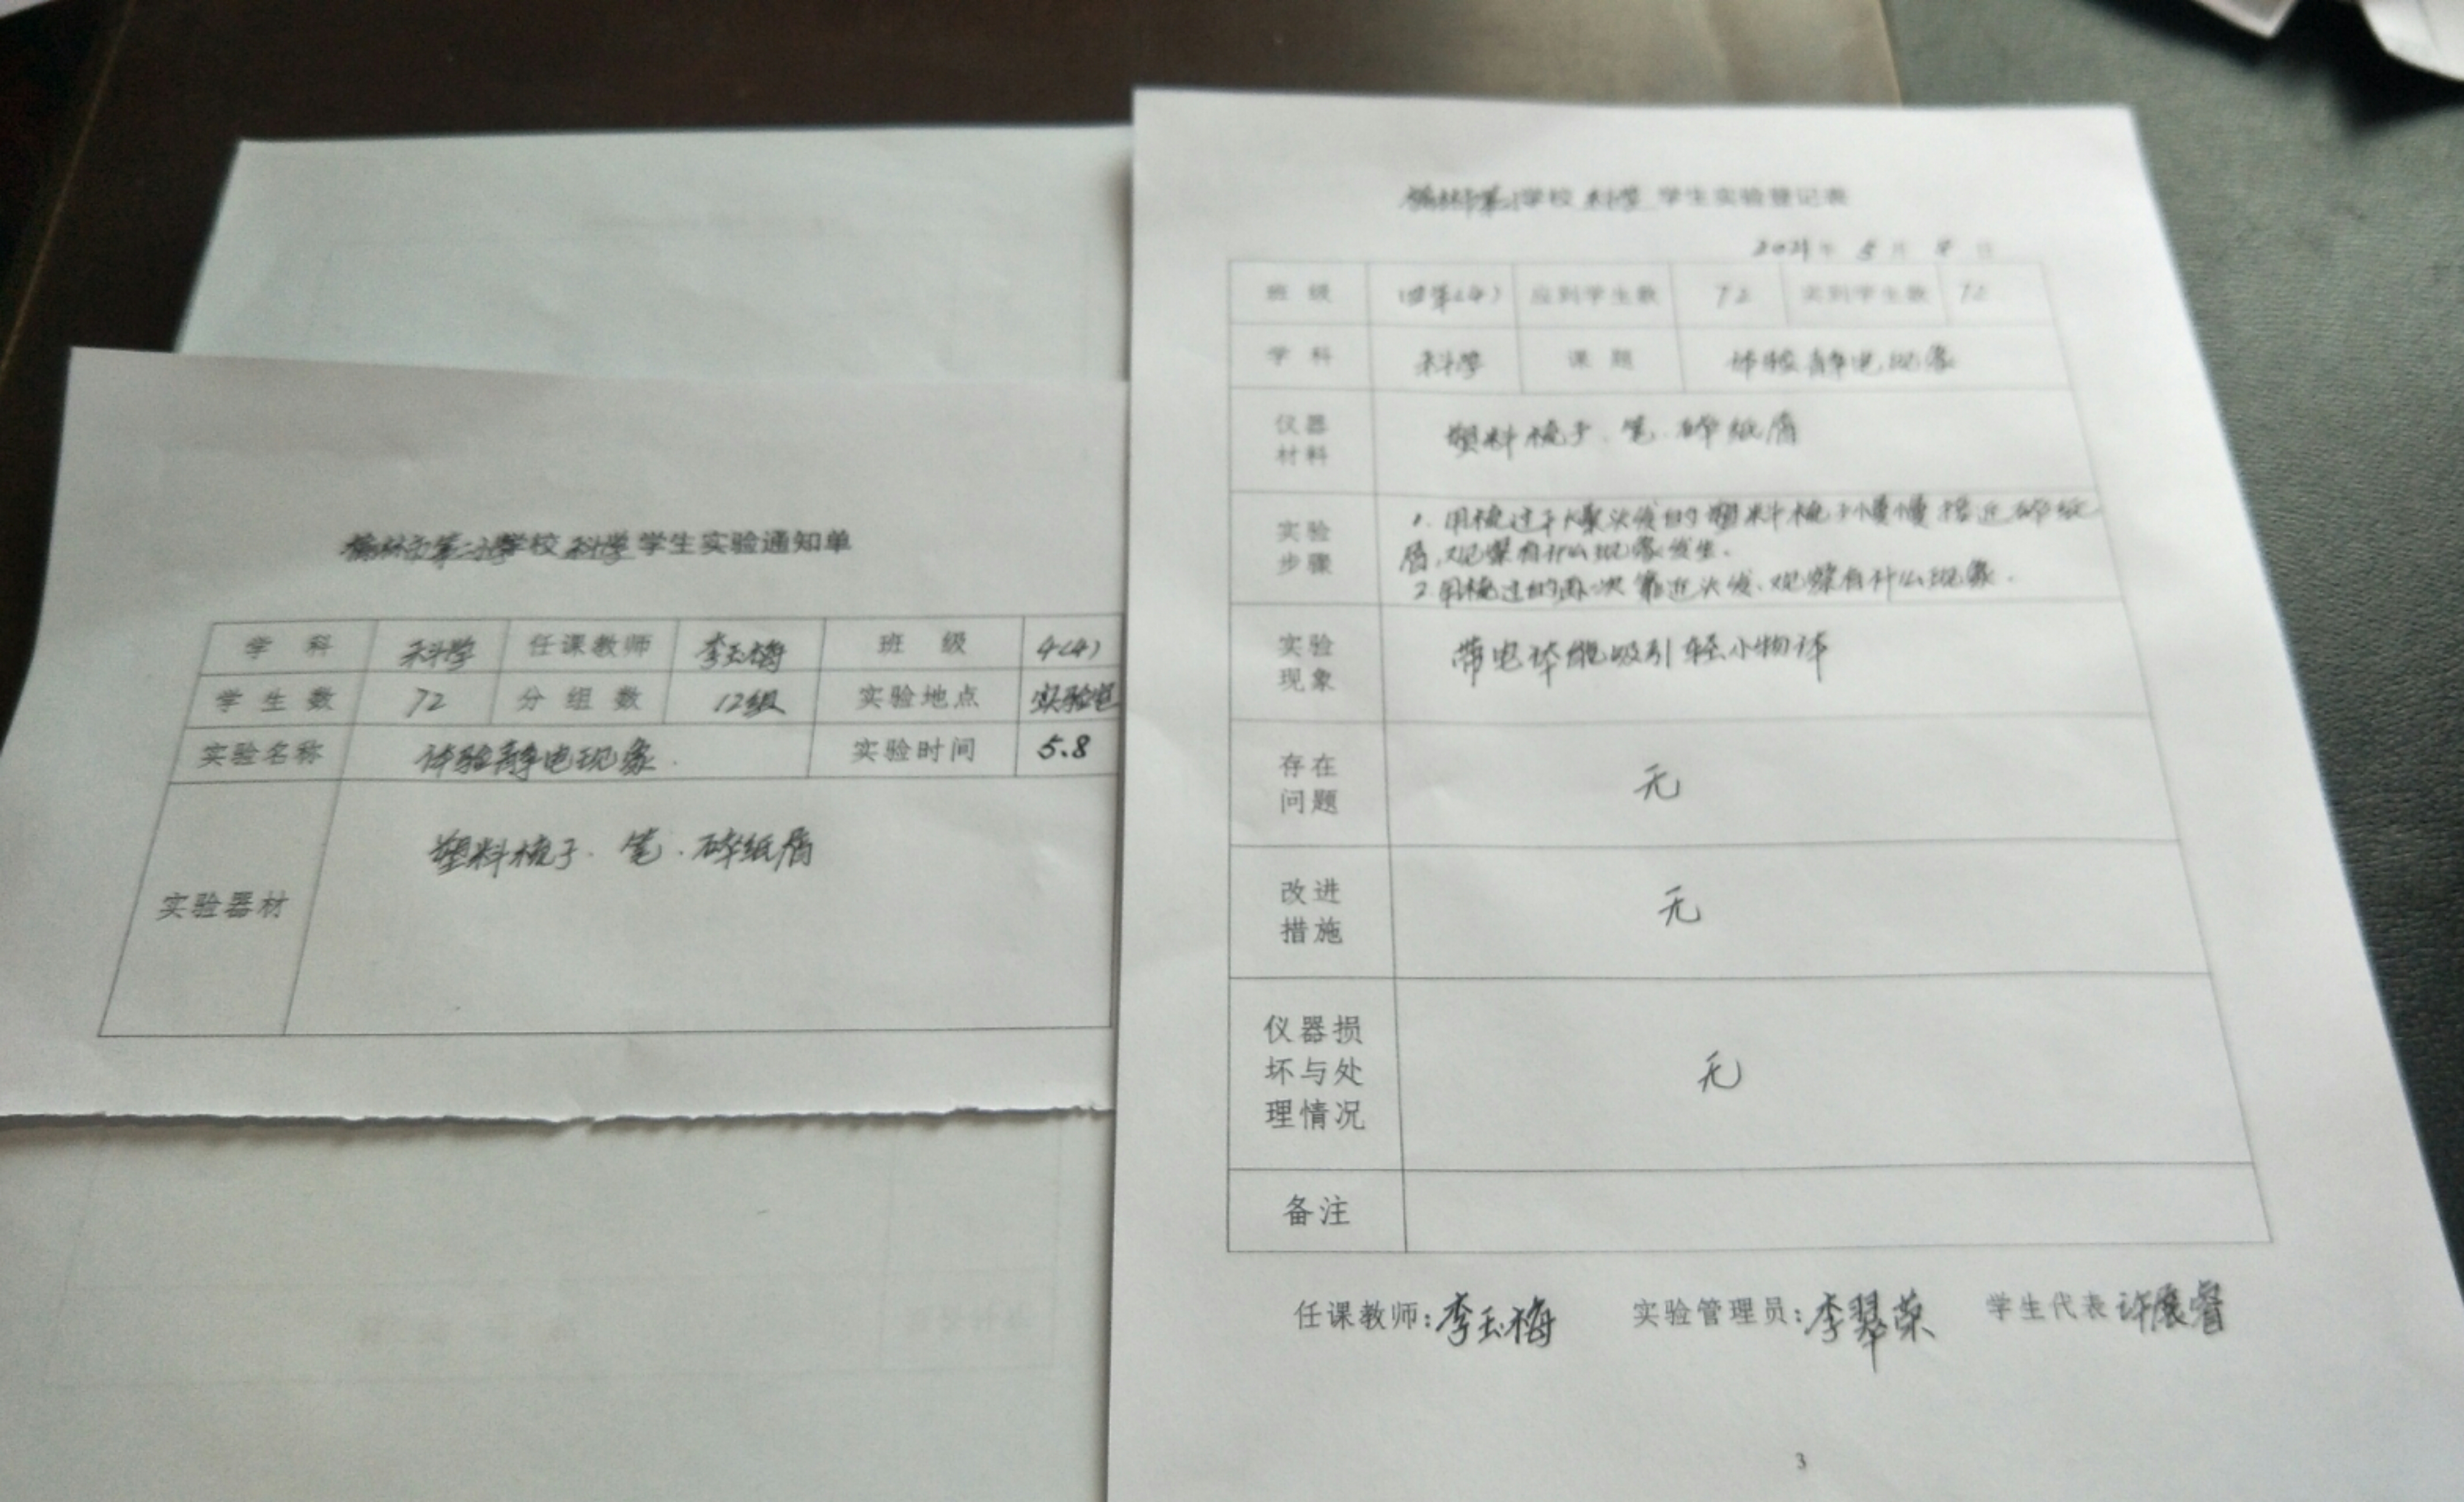 榆林市第二小学学校 科学 学生实验通知单
学科 科学 任课教师 李玉梅 班级 4(4)
学生数 72 分组数 12组 实验地点 实验室
实验名称 体验静电现象. 实验时间 5.8
实验器材 塑料梳子、笔、碎纸屑
学校 科学 学生实验登记表
2021年 5月 8日
班级 四年(4) 应到学生数 72 实到学生数 72
学科 科学 课题 体验静电现象
仪器材料 塑料梳子、笔、碎纸屑
实验步骤 1. 用梳过干燥头发的塑料梳子慢慢接近碎纸
屑,观察有什么现象发生.
2.用梳过的再次靠近头发、观察有什么现象.
实验现象 带电体能吸引轻小物体
存在问题 无
改进措施 无
仪器损坏与处理情况 无
备注
任课教师:李玉梅 实验管理员:李翠荣 学生代表 许展睿
3